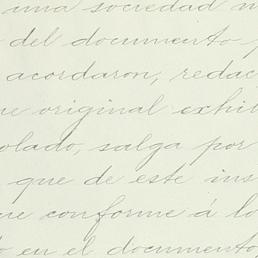 una sociedad m
del documento p
acordaron, redac
ue original exhib
olado, salga por
que de este ins
ue conforme á lo
o en el documento,